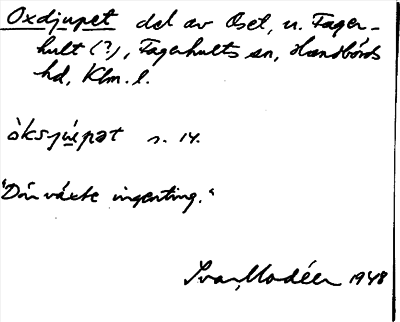 Oxdjupet del av Oset, u. Fager-
hult (?), Fagerhults sn, Handbörds
hd, Klm. l.
òksjúpət s. 14.
"Där växte ingenting."
Ivar Modéer 1948